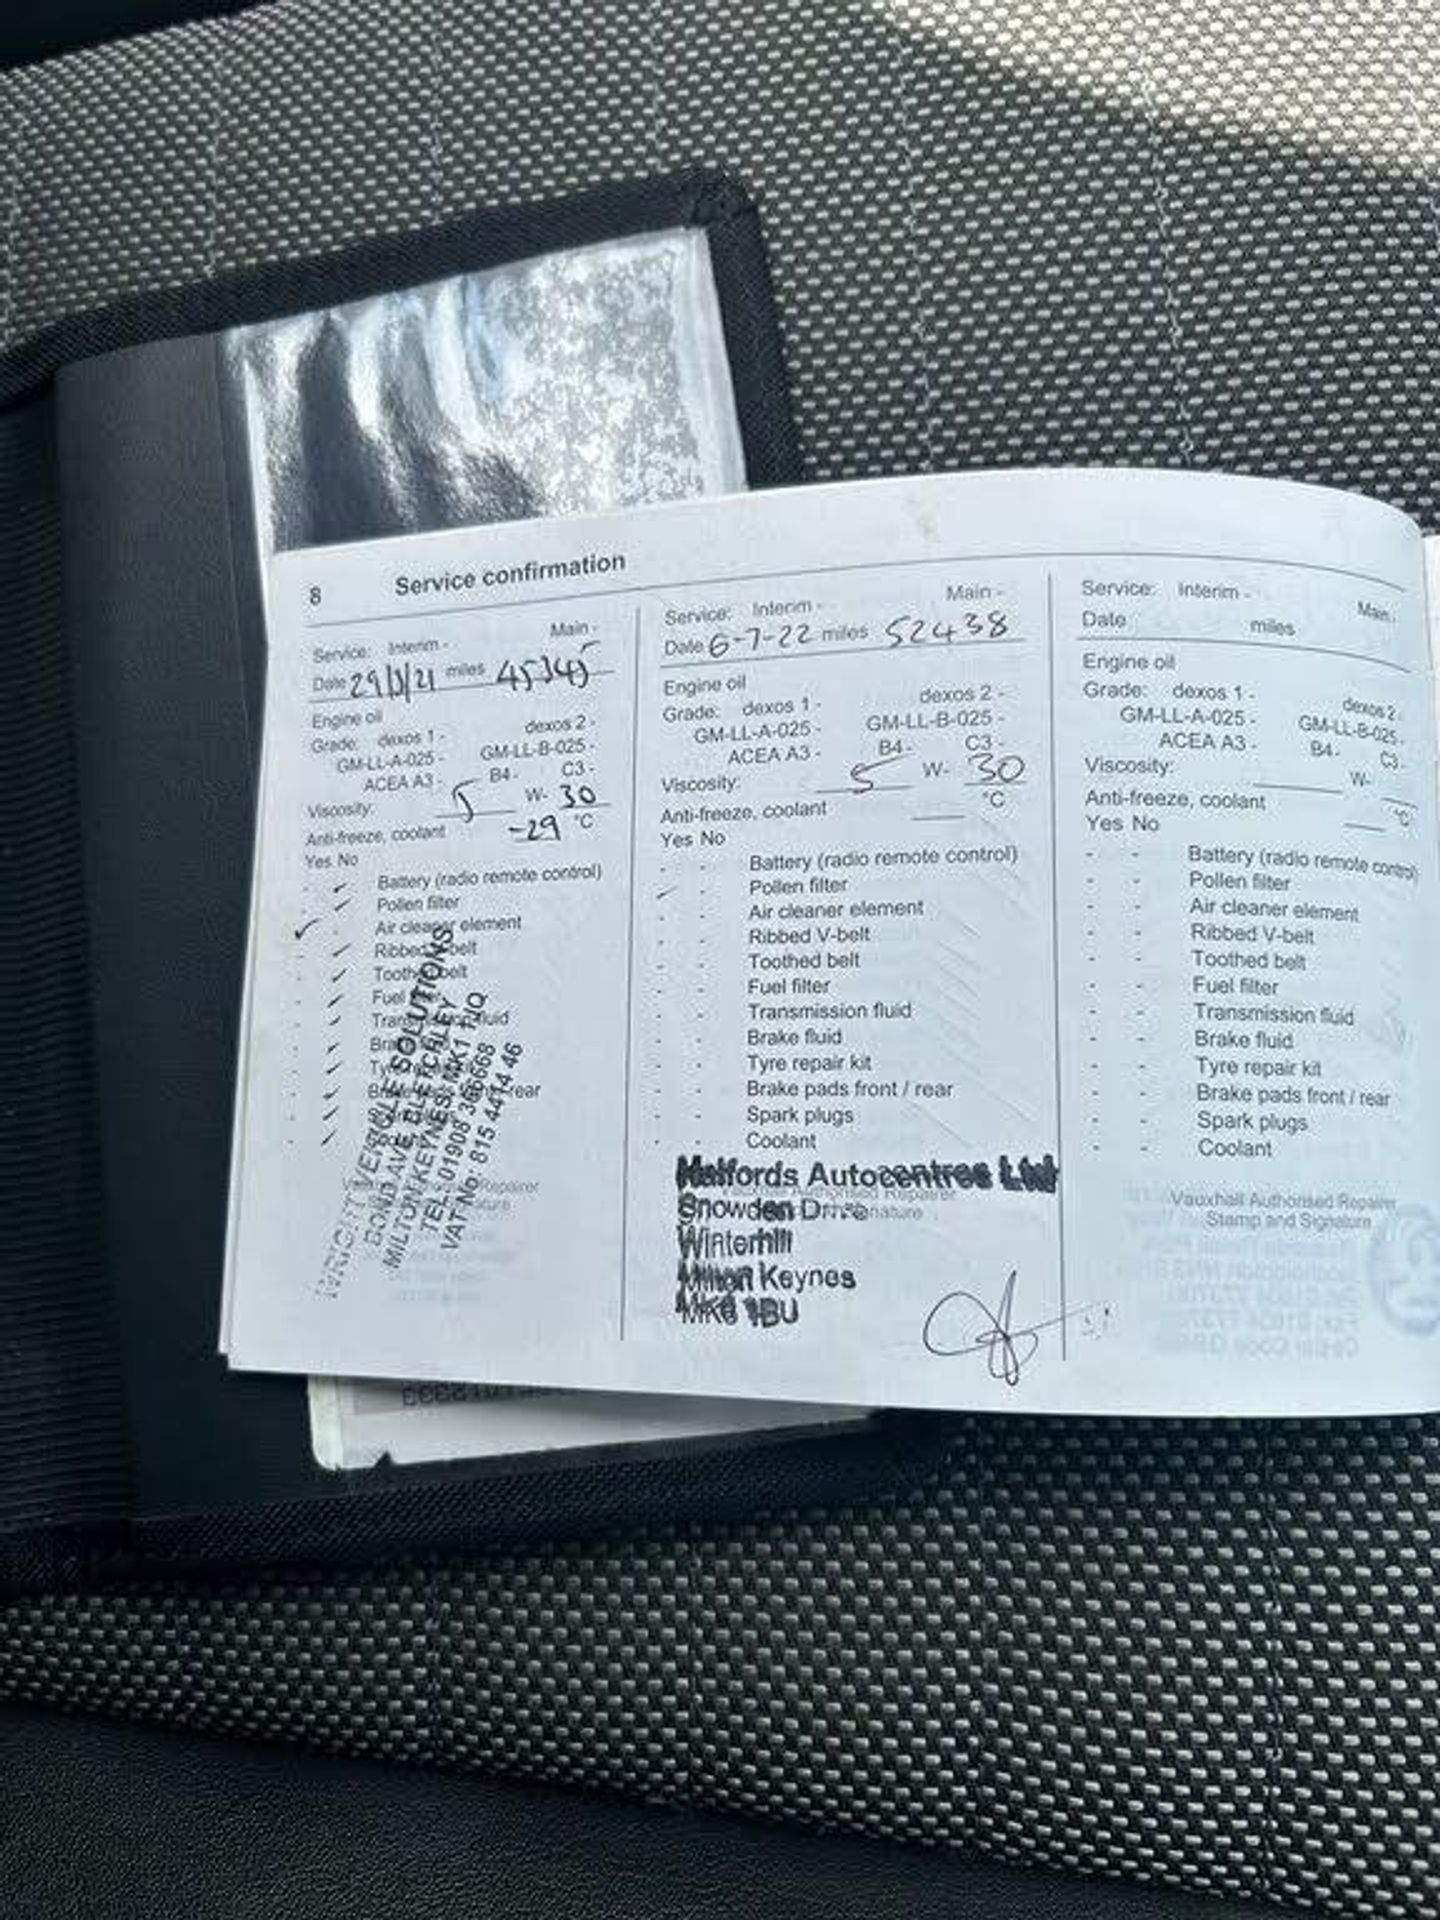 8 Service confirmation
Service: Interim - Main -
Date 29/3/21 miles
Engine oil
Grade: dexos 1 - dexos 2 -
GM-LL-A-025 - GM-LL-B-025 -
ACEA A3 - B4 - C3 -
Viscosity: 5 W- 30
Anti-freeze, coolant -29 °C
Yes No
Battery (radio remote control)
Pollen filter
Air cleaner element
Ribbed belt
Toothed belt
Fuel filter
fluid
rear
SOLUTIONS
BOND AVE, BLETCHLEY
MILTON KEYNES, MK1 1JQ
TEL: 01908 366668
VAT No: 815 4414 46
Service: Interim - Main -
Date 6-7-22 miles 52438
Engine oil
Grade: dexos 1 - dexos 2 -
GM-LL-A-025 - GM-LL-B-025 -
ACEA A3 - B4 - C3 -
Viscosity: 5 W- 30
Anti-freeze, coolant °C
Yes No
- - Battery (radio remote control)
- Pollen filter
- - Air cleaner element
- - Ribbed V-belt
- - Toothed belt
- - Fuel filter
- - Transmission fluid
- - Brake fluid
- - Tyre repair kit
- - Brake pads front / rear
- - Spark plugs
- - Coolant
Halfords Autocentres Ltd
Snowden Drive
Winterhill
Milton Keynes
MK6 1BU
Service: Interim - Main -
Date miles
Engine oil
Grade: dexos 1 - dexos 2 -
GM-LL-A-025 - GM-LL-B-025 -
ACEA A3 - B4 - C3 -
Viscosity: W-
Anti-freeze, coolant °C
Yes No
- - Battery (radio remote control)
- - Pollen filter
- - Air cleaner element
- - Ribbed V-belt
- - Toothed belt
- - Fuel filter
- - Transmission fluid
- - Brake fluid
- - Tyre repair kit
- - Brake pads front / rear
- - Spark plugs
- - Coolant
Vauxhall Authorised Repairer
Stamp and Signature